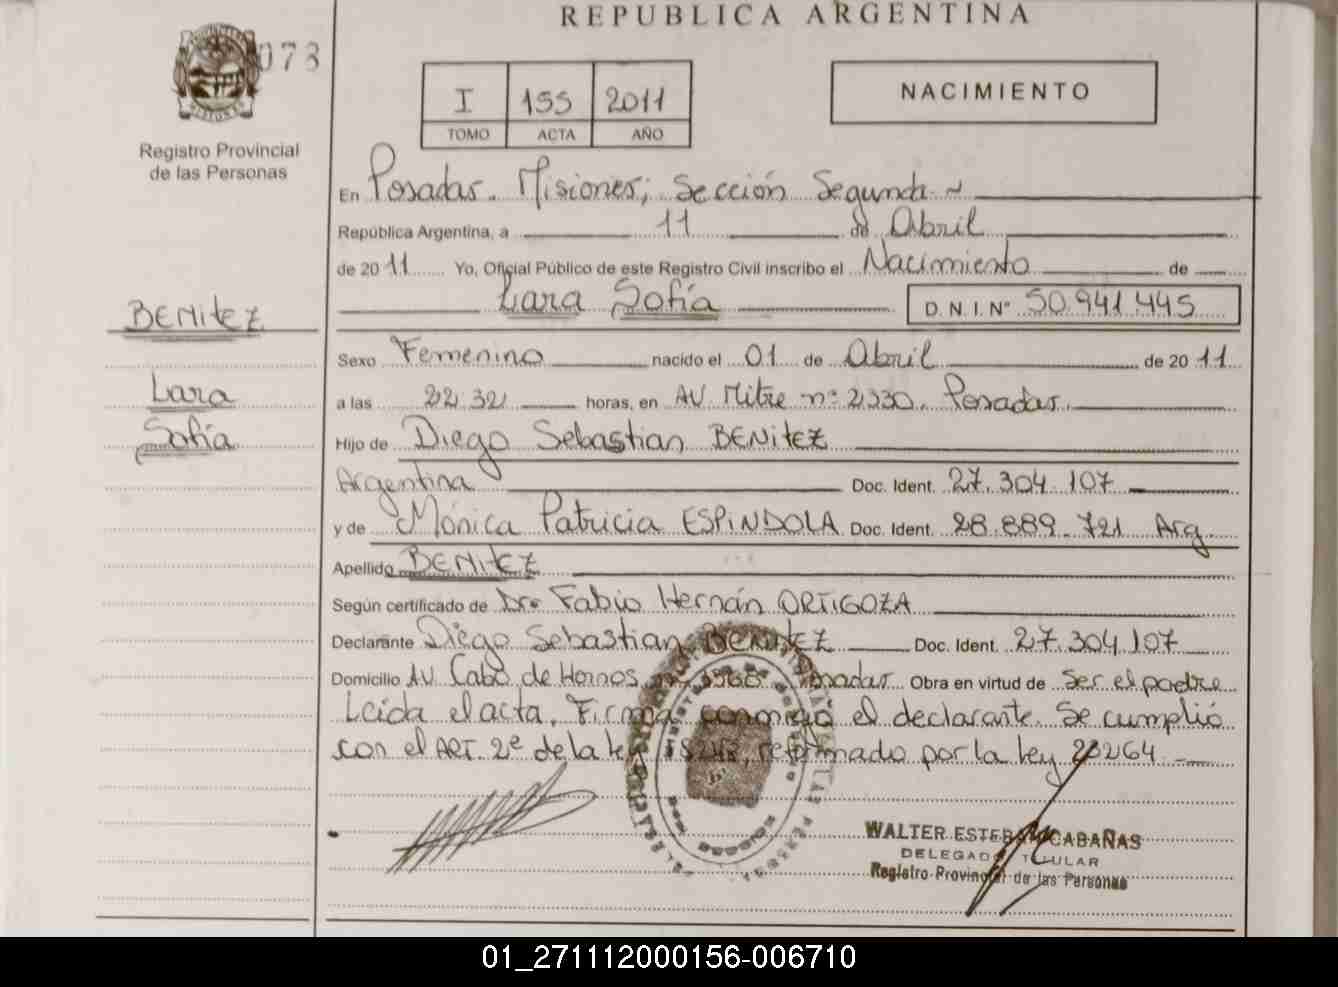 REPUBLICA ARGENTINA
073
Registro Provincial
de las Personas
I 155 2011
TOMO ACTA AÑO
NACIMIENTO
En Posadas. Misiones, Sección Segunda
República Argentina, a 11 de Abril
de 2011 Yo, Oficial Público de este Registro Civil inscribo el Nacimiento de
Lara Sofía D.N.I.Nº 50.941.445
BENITEZ
Lara
Sofía
Sexo Femenino nacido el 01 de Abril de 2011
a las 22 32 horas, en AV. Mitre nº 2330. Posadas.
Hijo de Diego Sebastian BENITEZ
Argentina Doc. Ident. 27.304.107
y de Mónica Patricia ESPINDOLA Doc. Ident. 28.889.721 Arg.
Apellido BENITEZ
Según certificado de Dr. Fabio Hernán ORTIGOZA
Declarante Diego Sebastian BENITEZ Doc. Ident. 27.304.107
Domicilio AV. Cabo de Hornos Posadas Obra en virtud de Ser el padre
Leida el acta, Firma conmigo el declarante. Se cumplió
con el ART. 2º de la ley reformado por la ley
WALTER ESTEBAN CABAÑAS
DELEGADO TITULAR
Registro Provincial de las Personas
01_271112000156-006710